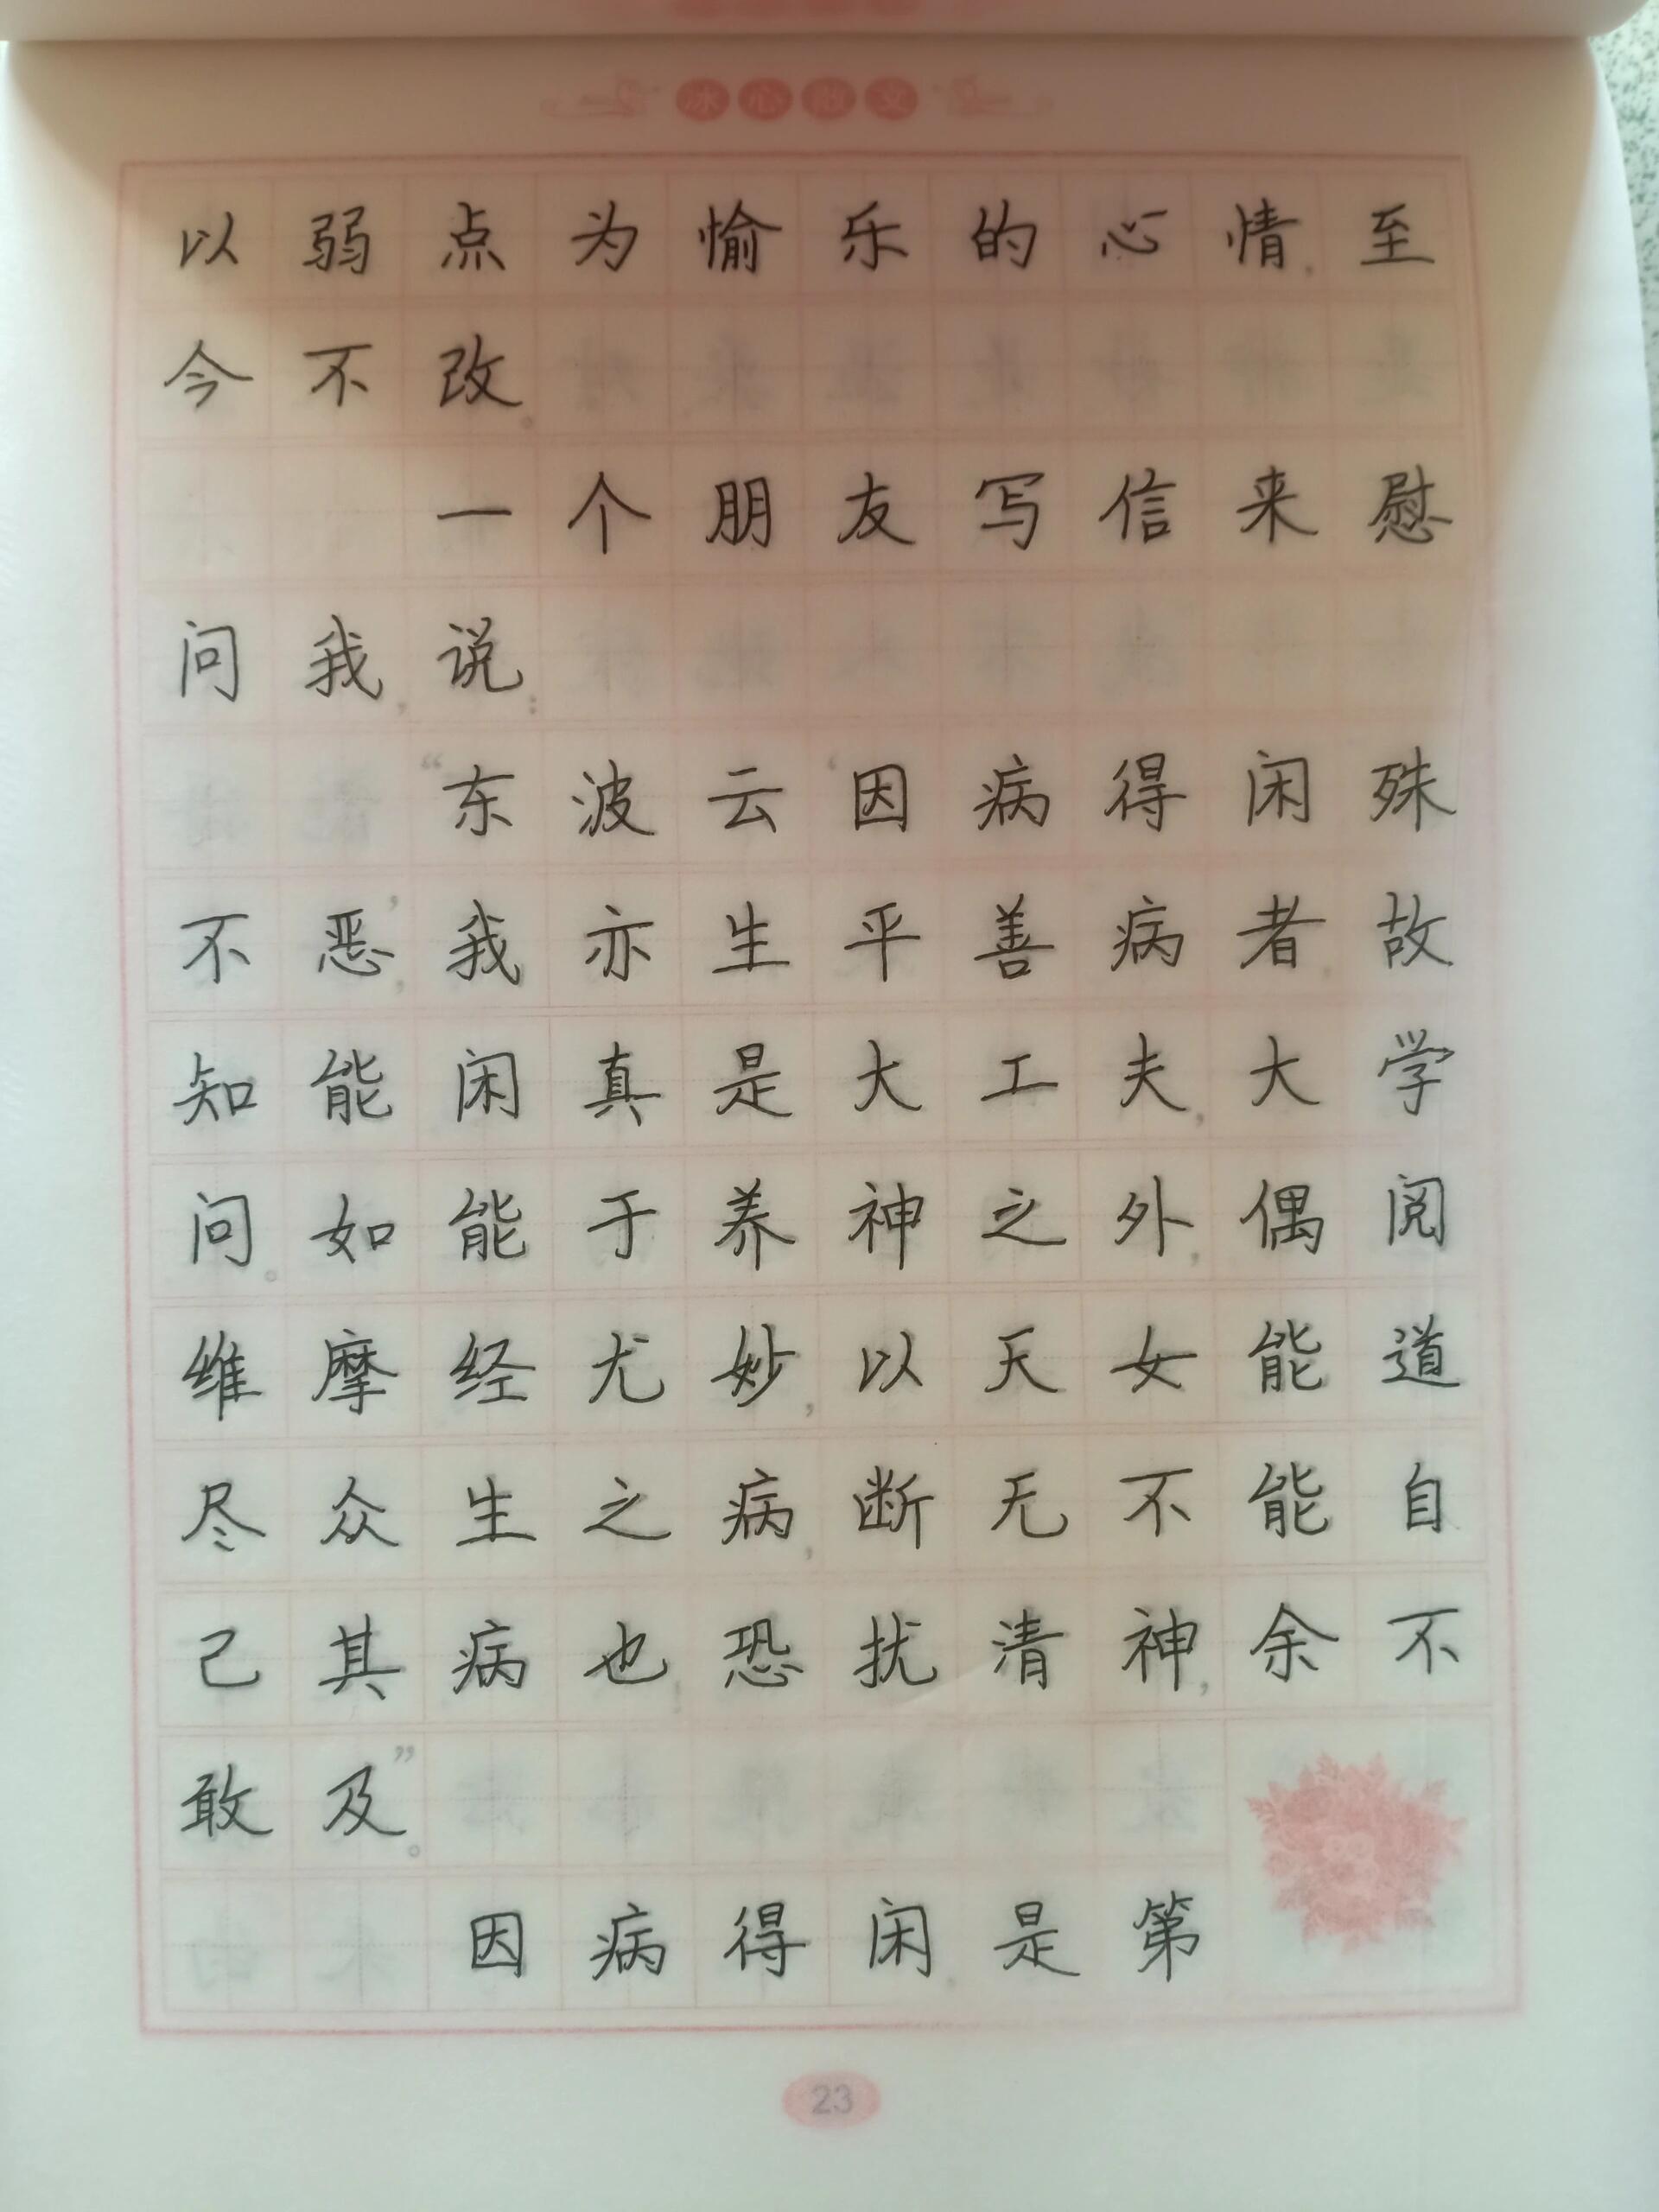 冰心散文
以弱点为愉乐的心情,至
今不改。
一个朋友写信来慰
问我,说:
“东波云‘因病得闲殊
不恶’,我亦生平善病者,故
知能闲真是大工夫,大学
问。如能于养神之外,偶阅
维摩经尤妙,以天女能道
尽众生之病,断无不能自
己其病也!恐扰清神,余不
敢及。”
因病得闲,是第
23